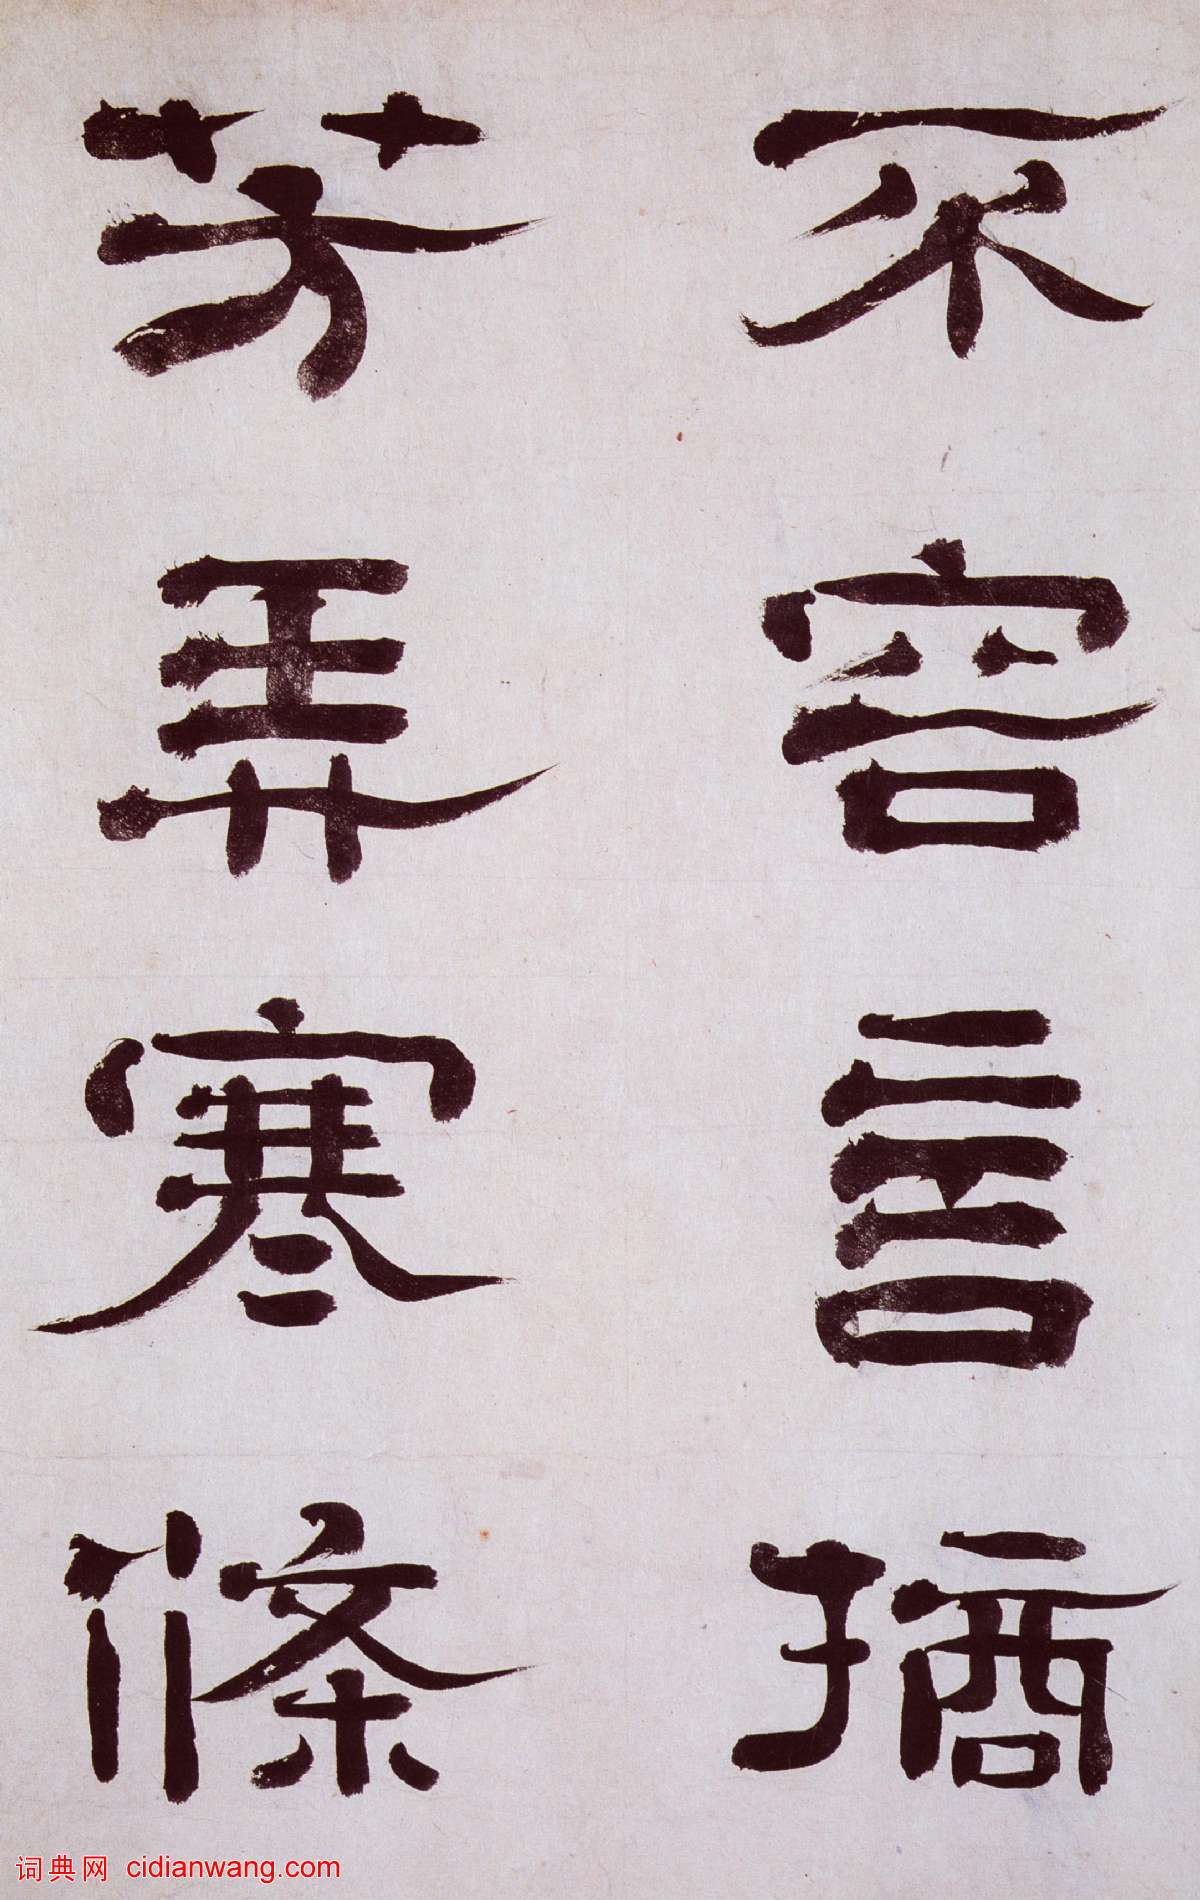 不容言摘
芳弄寒條
词典网 cidianwang.com